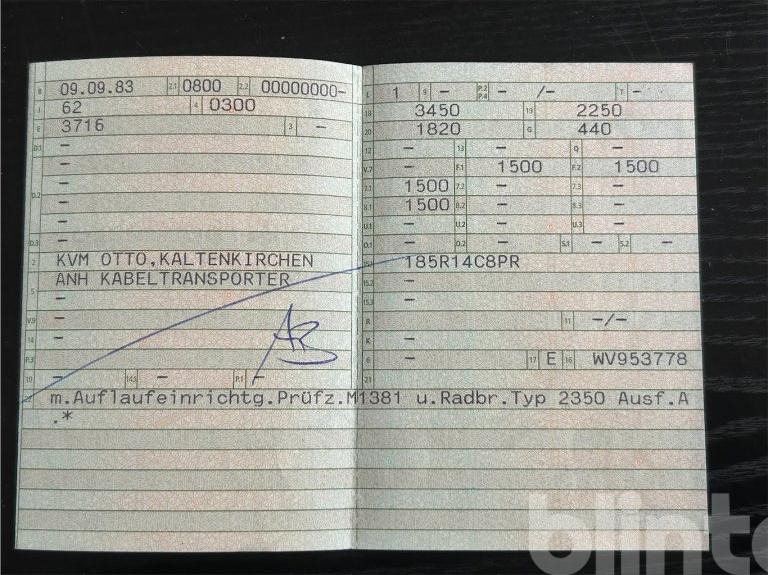 B 09.09.83 2.1 0800 2.2 00000000-
J 62 4 0300
E 3716 3 -
D.1 -
-
D.2 -
-
-
D.3 -
2 KVM OTTO,KALTENKIRCHEN
5 ANH KABELTRANSPORTER
-
V.9 -
14 -
P.3 -
10 - 14.1 - P.1 -
L 1 9 - P.2 P.4 - /- T -
18 3450 19 2250
20 1820 G 440
12 - 13 - Q -
V.7 - F.1 1500 F.2 1500
7.1 1500 7.2 - 7.3 -
8.1 1500 8.2 - 8.3 -
U.1 - U.2 - U.3 -
O.1 - O.2 - S.1 - S.2 -
15.1 185R14C8PR
15.2 -
15.3 -
R - 11 -/-
K -
6 - 17 E 16 WV953778
21
22 m.Auflaufeinrichtg.Prüfz.M1381 u.Radbr.Typ 2350 Ausf.A
.*